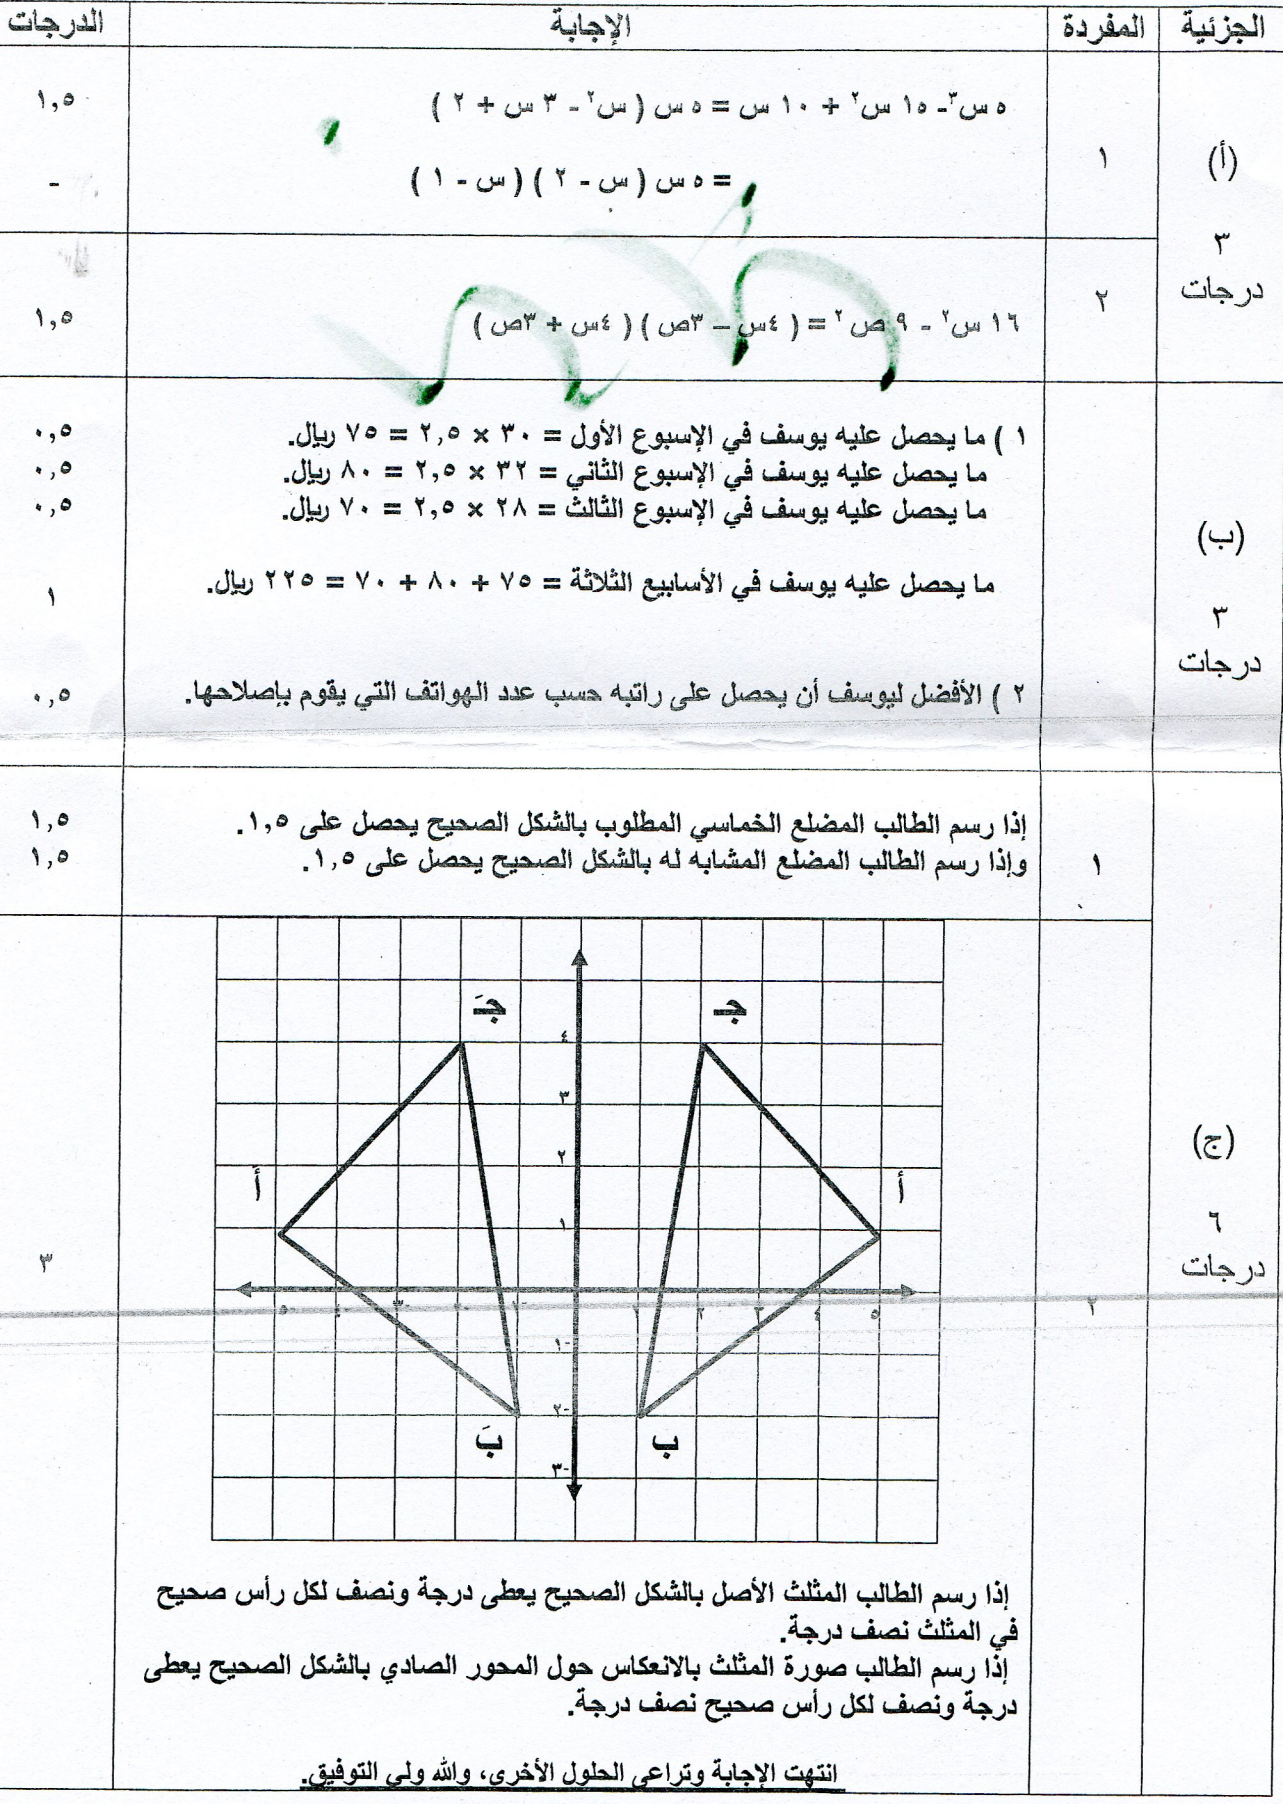 الجزئية المفردة الإجابة الدرجات
(أ)
٣
درجات
١
٥ س٣- ١٥ س٢ + ١٠ س = ٥ س ( س٢ - ٣ س + ٢ ) ١,٥
= ٥ س ( س - ٢ ) ( س - ١ ) -
٢
١٦ س٢ - ٩ ص٢ = ( ٤س – ٣ص ) ( ٤س + ٣ص ) ١,٥
(ب)
٣
درجات
١ ) ما يحصل عليه يوسف في الإسبوع الأول = ٣٠ × ٢,٥ = ٧٥ ريال. ٠,٥
ما يحصل عليه يوسف في الإسبوع الثاني = ٣٢ × ٢,٥ = ٨٠ ريال. ٠,٥
ما يحصل عليه يوسف في الإسبوع الثالث = ٢٨ × ٢,٥ = ٧٠ ريال. ٠,٥
ما يحصل عليه يوسف في الأسابيع الثلاثة = ٧٥ + ٨٠ + ٧٠ = ٢٢٥ ريال. ١
٢ ) الأفضل ليوسف أن يحصل على راتبه حسب عدد الهواتف التي يقوم بإصلاحها. ٠,٥
(ج)
٦
درجات
١
إذا رسم الطالب المضلع الخماسي المطلوب بالشكل الصحيح يحصل على ١,٥. ١,٥
وإذا رسم الطالب المضلع المشابه له بالشكل الصحيح يحصل على ١,٥. ١,٥
٢
جـ جـَ
٤
٣
٢
أ أَ
١
٣
٥ ٤ ٣ ٢ ١
١-
٢-
ب بَ
٣-
إذا رسم الطالب المثلث الأصل بالشكل الصحيح يعطى درجة ونصف لكل رأس صحيح
في المثلث نصف درجة.
إذا رسم الطالب صورة المثلث بالانعكاس حول المحور الصادي بالشكل الصحيح يعطى
درجة ونصف لكل رأس صحيح نصف درجة.
انتهت الإجابة وتراعى الحلول الأخرى، والله ولي التوفيق.